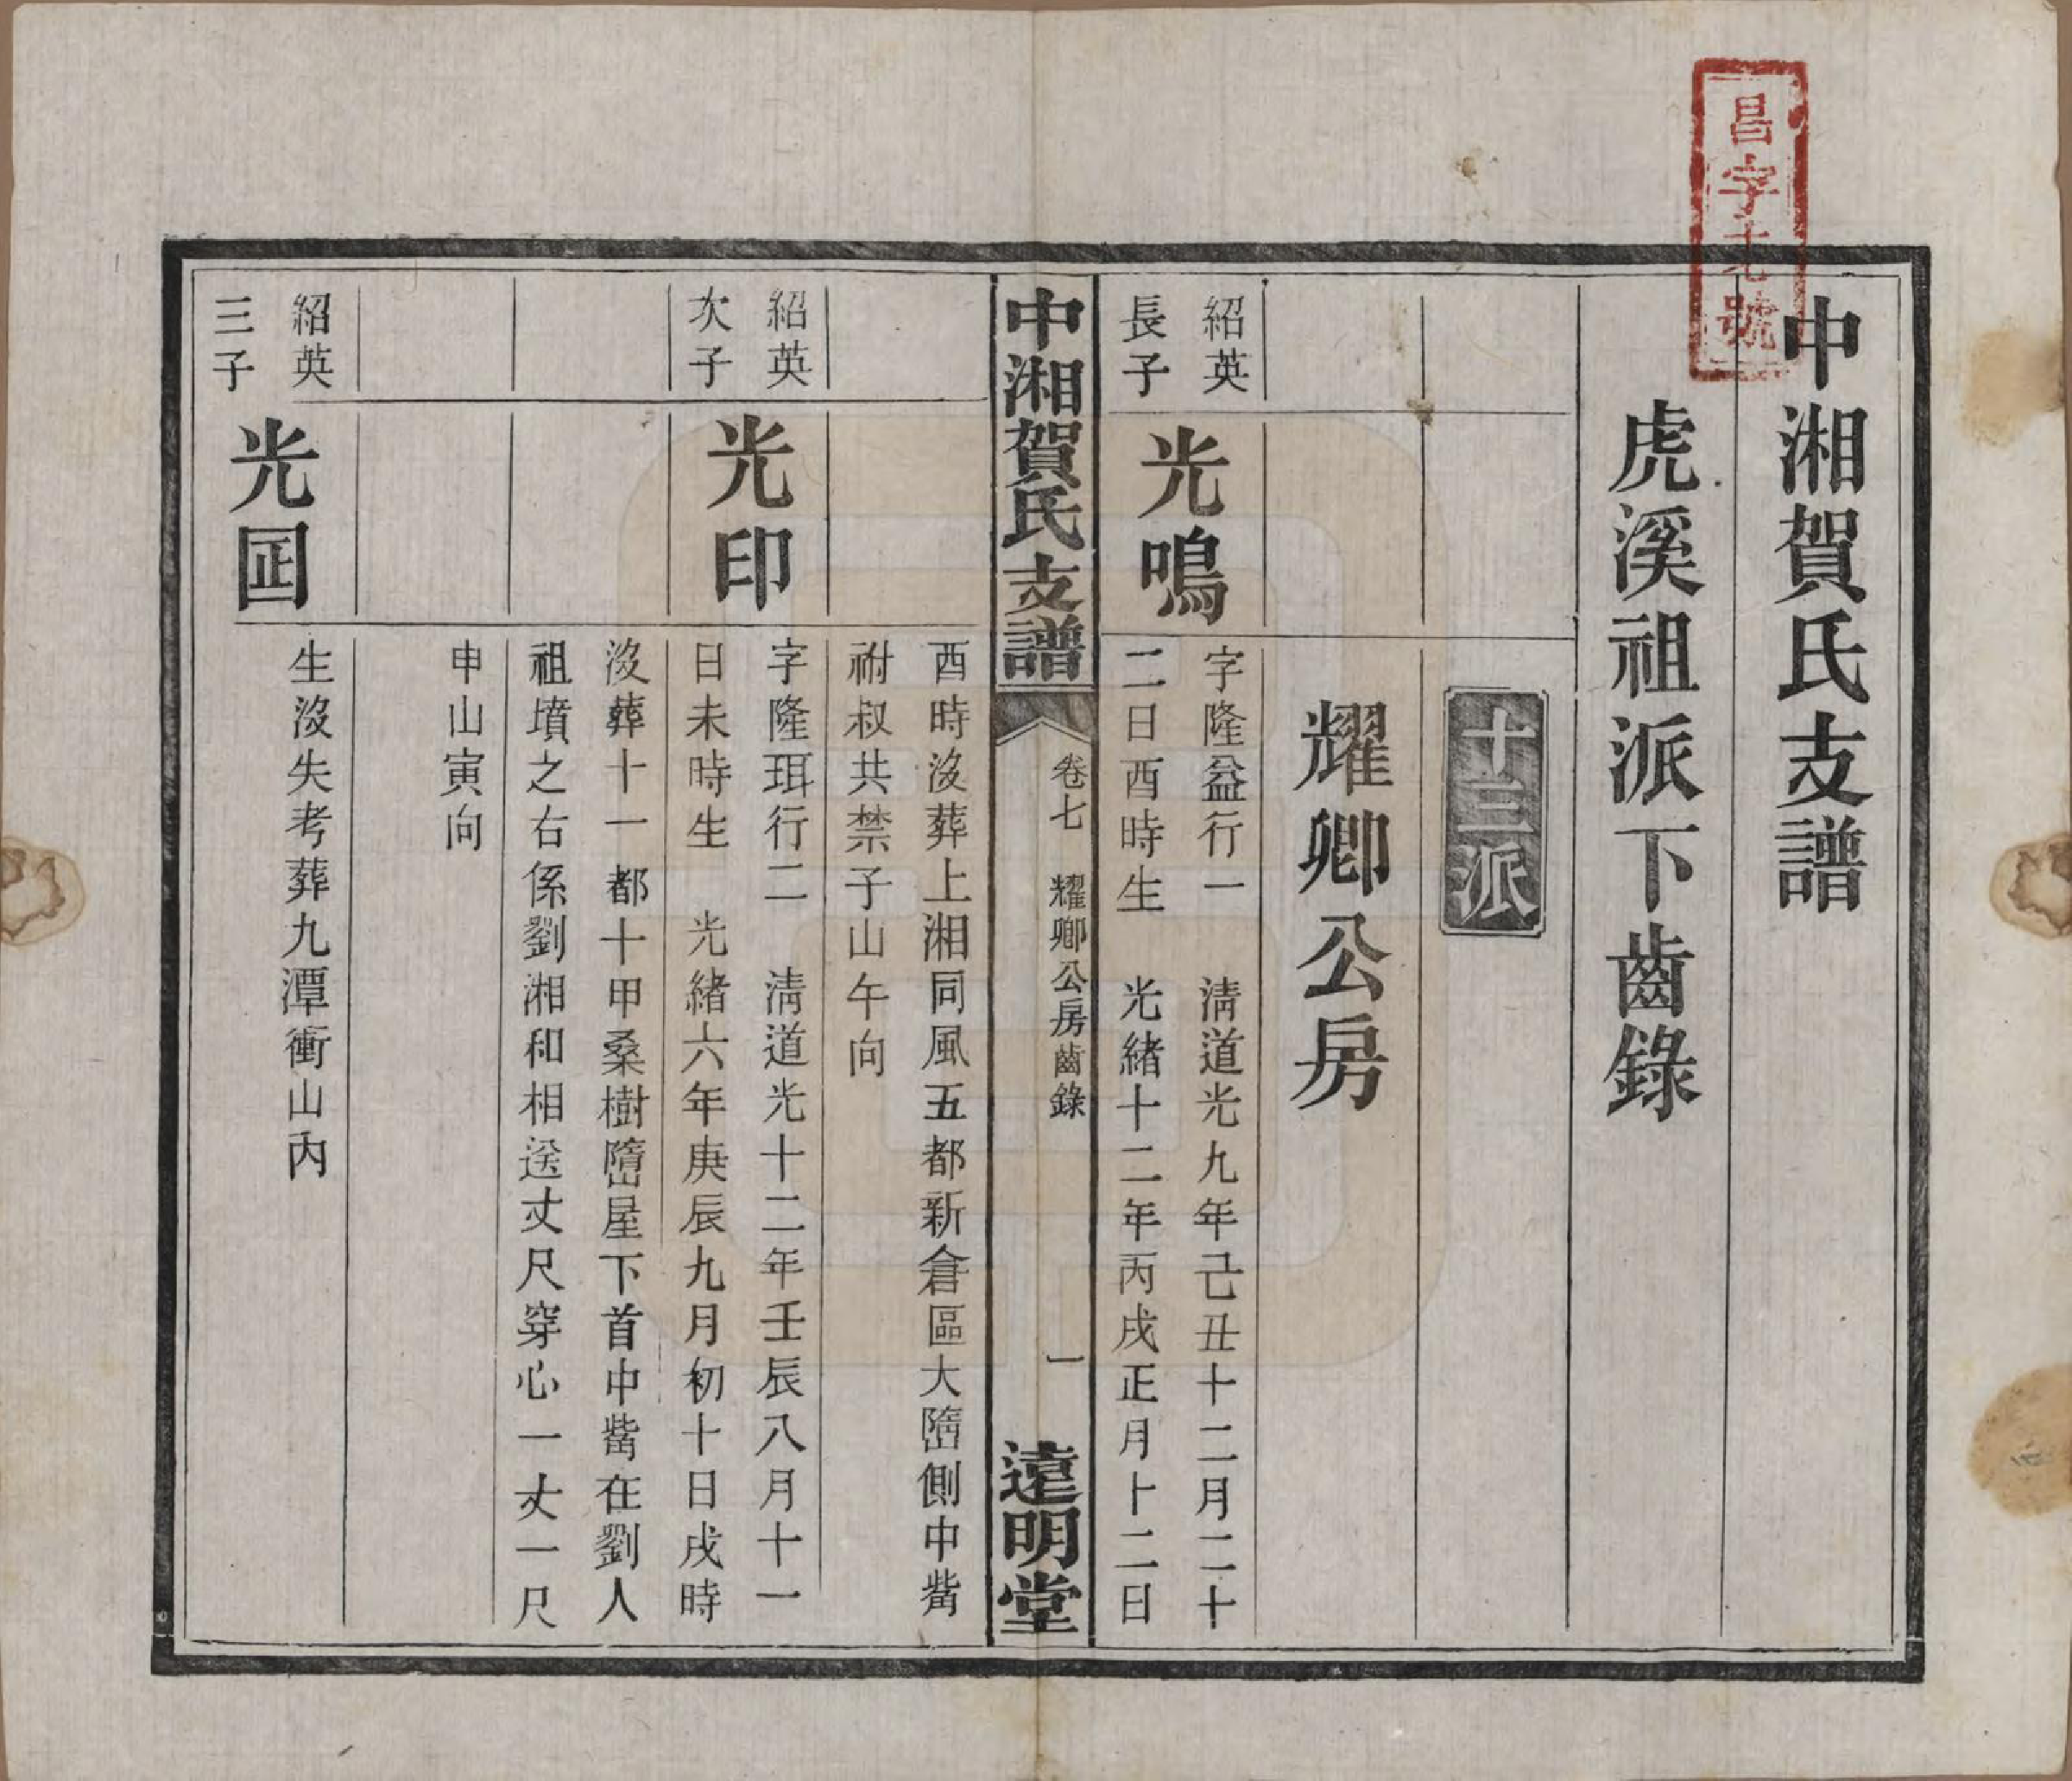 昌字十九號
中湘賀氏支譜
虎溪祖派下齒錄
十三派
耀卿公房
紹英
長子
光鳴
字隆益行一　清道光九年己丑十二月二十
二日酉時生　光緒十二年丙戌正月十二日
中湘賀氏支譜
卷七　耀卿公房齒錄
一
遠明堂
酉時沒葬上湘同風五都新倉區大䧟側中嵴
祔叔共禁子山午向
紹英
次子
光印
字隆珥行二　清道光十二年壬辰八月十一
日未時生　光緒六年庚辰九月初十日戌時
沒葬十一都十甲桑樹屋下首中在劉人
祖墳之右係劉湘和相送丈尺穿心一丈一尺
申山寅向
紹英
三子
光囸
生沒失考葬九潭衝山內